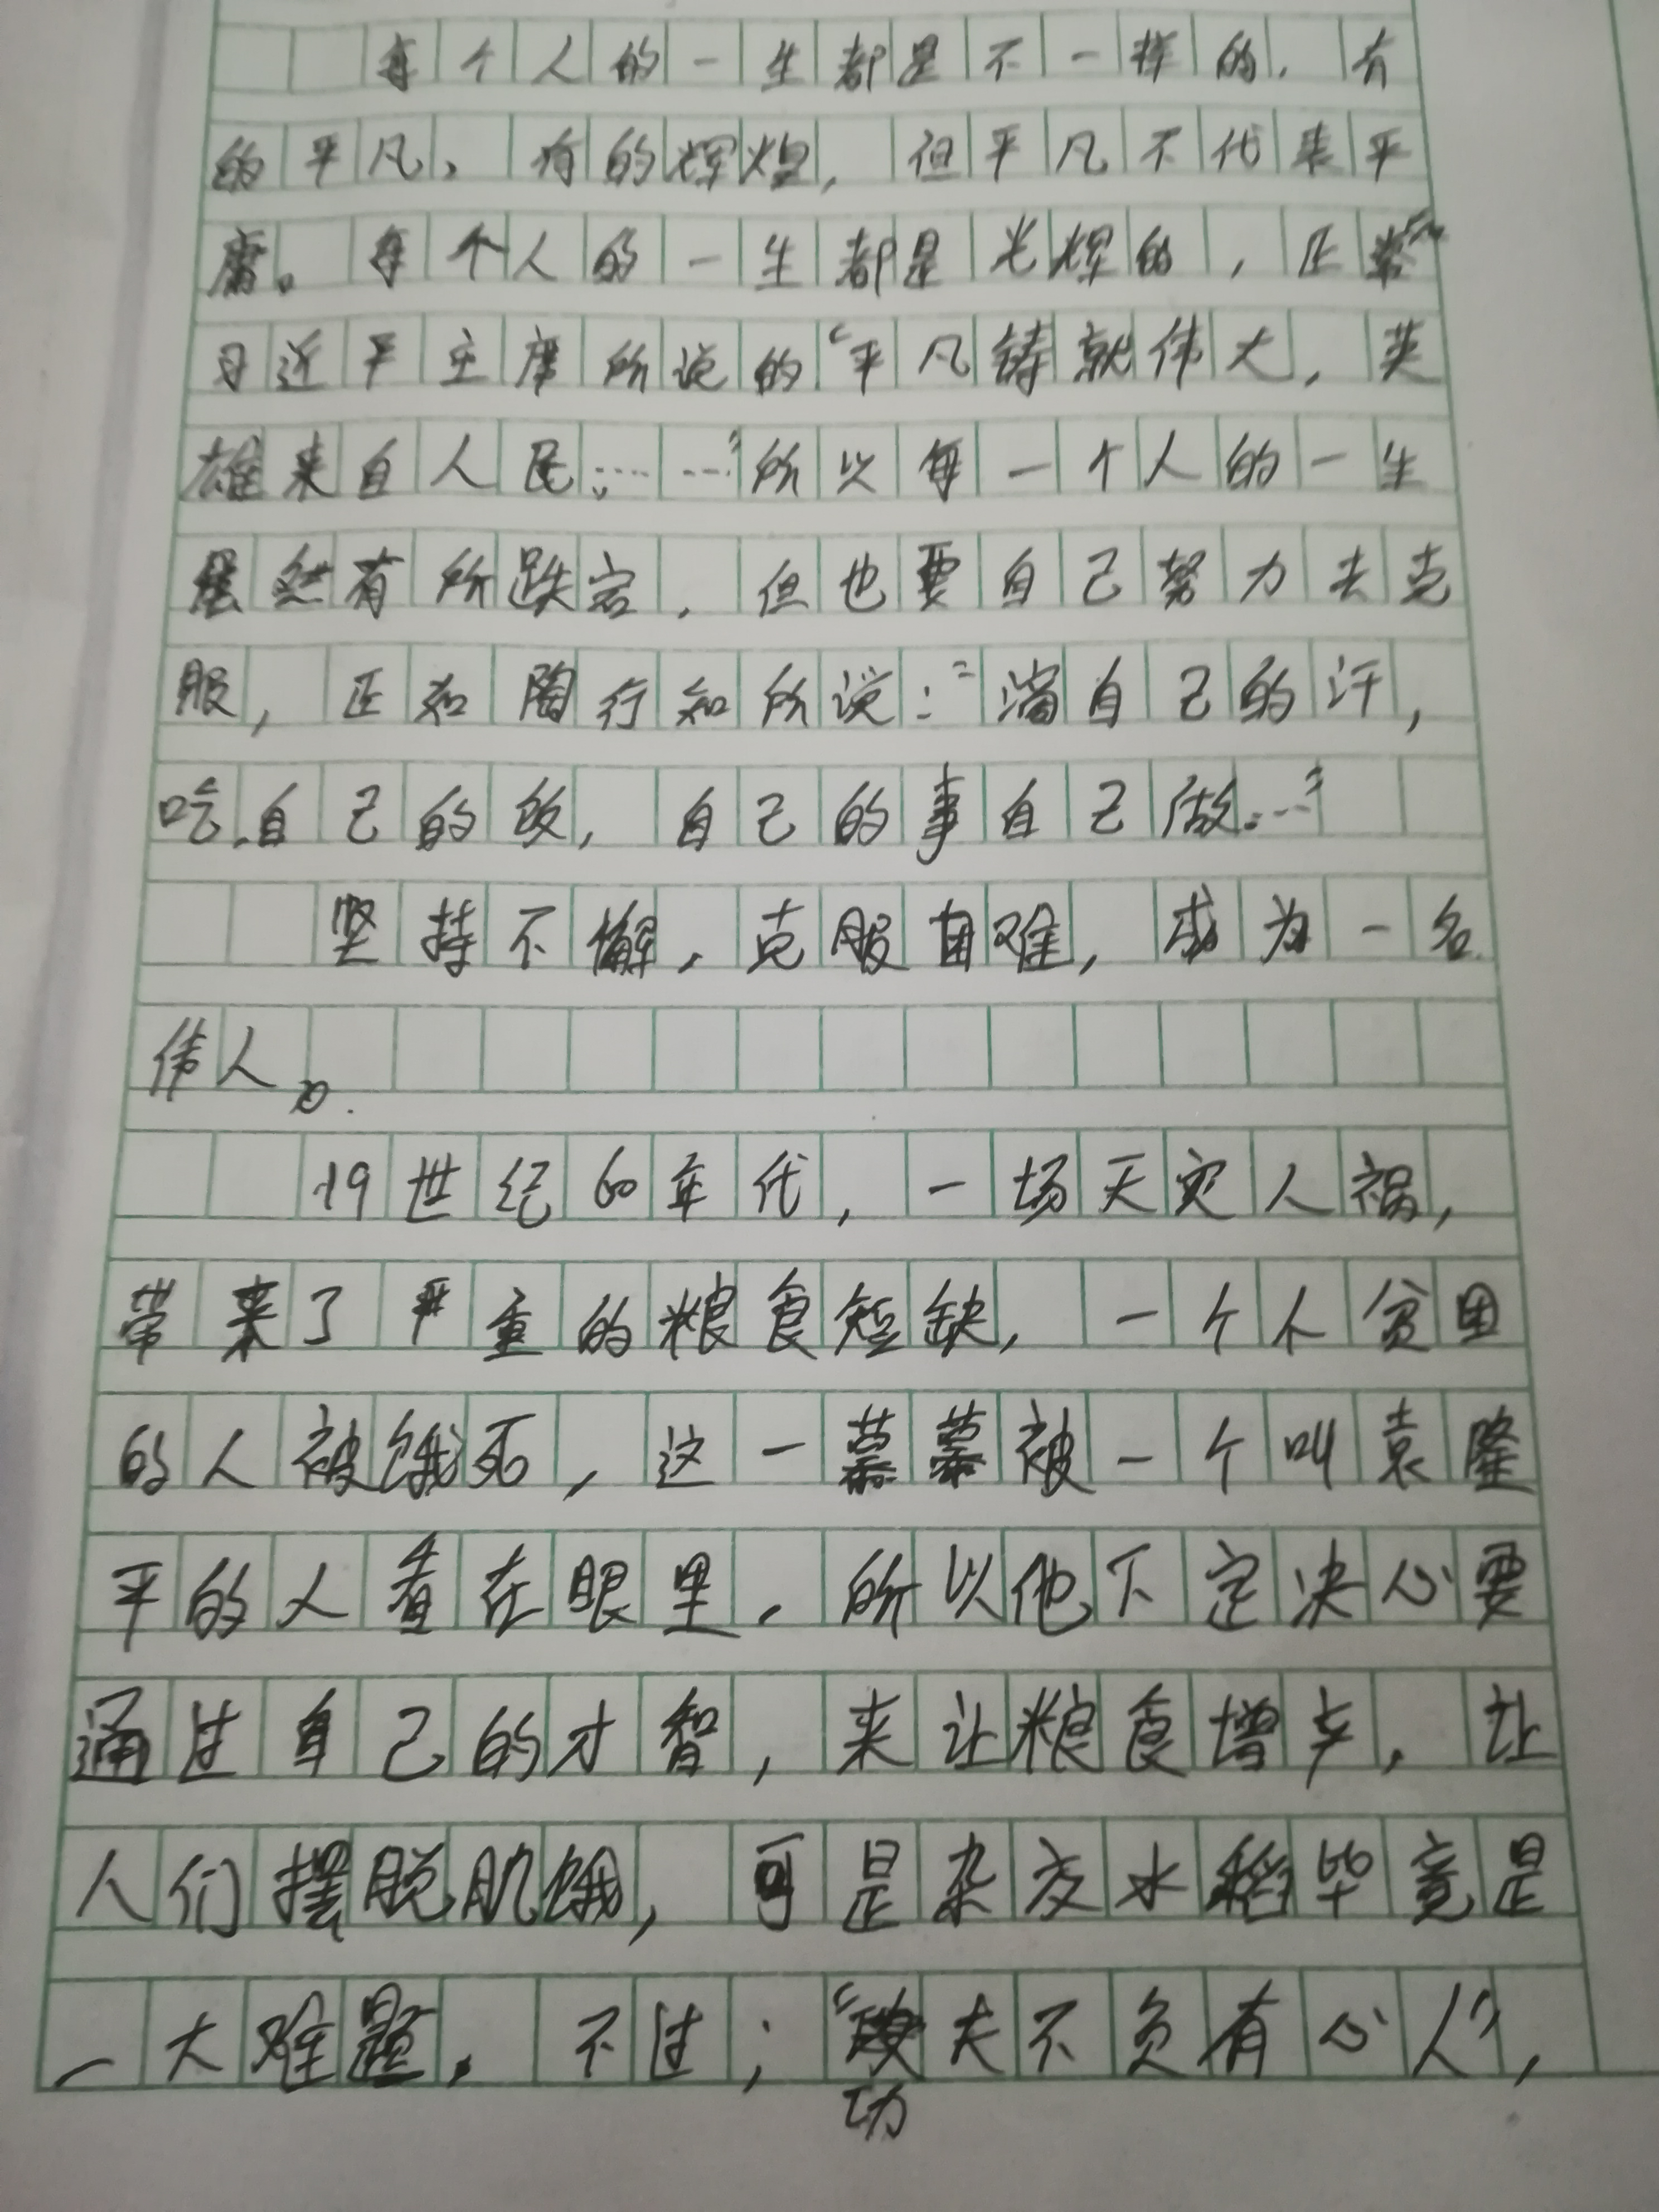 每个人的一生都是不一样的，有
的平凡，有的辉煌，但平凡不代表平
庸。每个人的一生都是光辉的，正
习近平主席所说的“平凡铸就伟大，英
雄来自人民……”所以每一个人的一生
虽然有所跌宕，但也要自己努力去克
服，正如陶行知所说：“淌自己的汗，
吃自己的饭，自己的事自己做……”
坚持不懈，克服困难，成为一名
伟人。
19世纪60年代，一场天灾人祸，
带来了严重的粮食短缺，一个个贫困
的人被饿死，这一幕幕被一个叫袁隆
平的人看在眼里，所以他下定决心要
通过自己的才智，来让粮食增产，让
人们摆脱肌饿，可是杂交水稻毕竟是
一大难题，不过；“功夫不负有心人”，